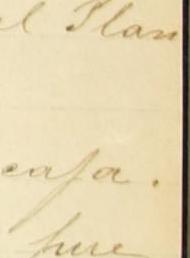 l Plan
casa.
fue